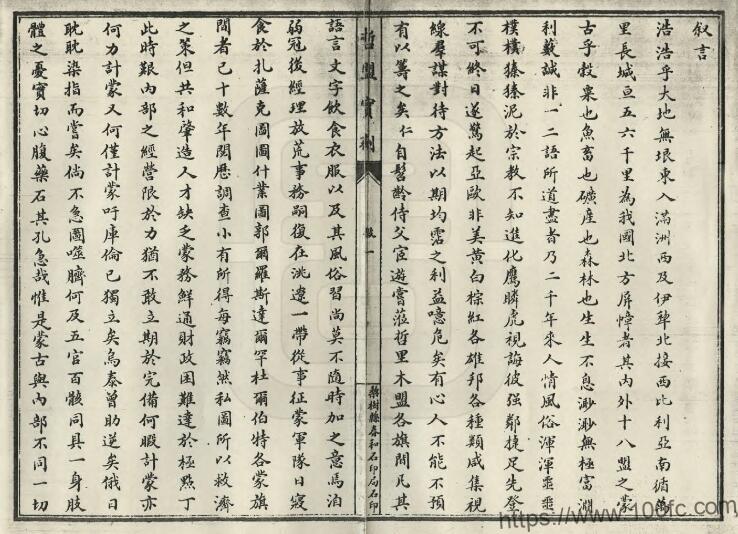 叙言
浩浩乎大地無垠東入滿洲西及伊犂北接西比利亞南循萬
里長城亘五六千里為我國北方屏幛者其内外十八盟之蒙
古乎穀粟也魚畜也礦産也森林也生生不息渺渺無極富淵
利藪誠非一二語所道盡者乃二千年來人情風俗渾渾噩噩
樸樸獉獉泥於宗教不知進化鷹瞵虎視誨彼强鄰捷足先登
不可終日遂驚起亞歐非美黄白棕紅各雄邦各種類咸集視
線羣謀對待方法以期均霑之利益噫危矣有心人不能不預
有以籌之矣仁自髫齡侍父宦遊嘗蒞哲里木盟各旗間凡其
哲盟實剂
叙一
梨樹縣春和石印局石印
語言文字飲食衣服以及其風俗習尚莫不隨時加之意焉洎
弱冠後經理放荒事務嗣復在洮遼一帶從事征蒙軍隊日寢
食於扎薩克圖圖什業圖郭爾羅斯達爾罕杜爾伯特各蒙旗
間者已十數年閱歷調查小有所得每竊竊然私圖所以救濟
之策但共和肇造人才缺乏蒙務鮮通財政困難達於極點丁
此時艱内部之經營限於力猶不敢立期於完備何暇計蒙亦
何力計蒙又何僅計蒙吁庫倫已獨立矣烏泰曾助逆矣俄日
眈眈染指而嘗矣倘不急圖噬臍何及五官百骸同具一身肢
體之憂實切心腹藥石其孔急哉惟是蒙古與内部不同一切
https://www.106fc.com